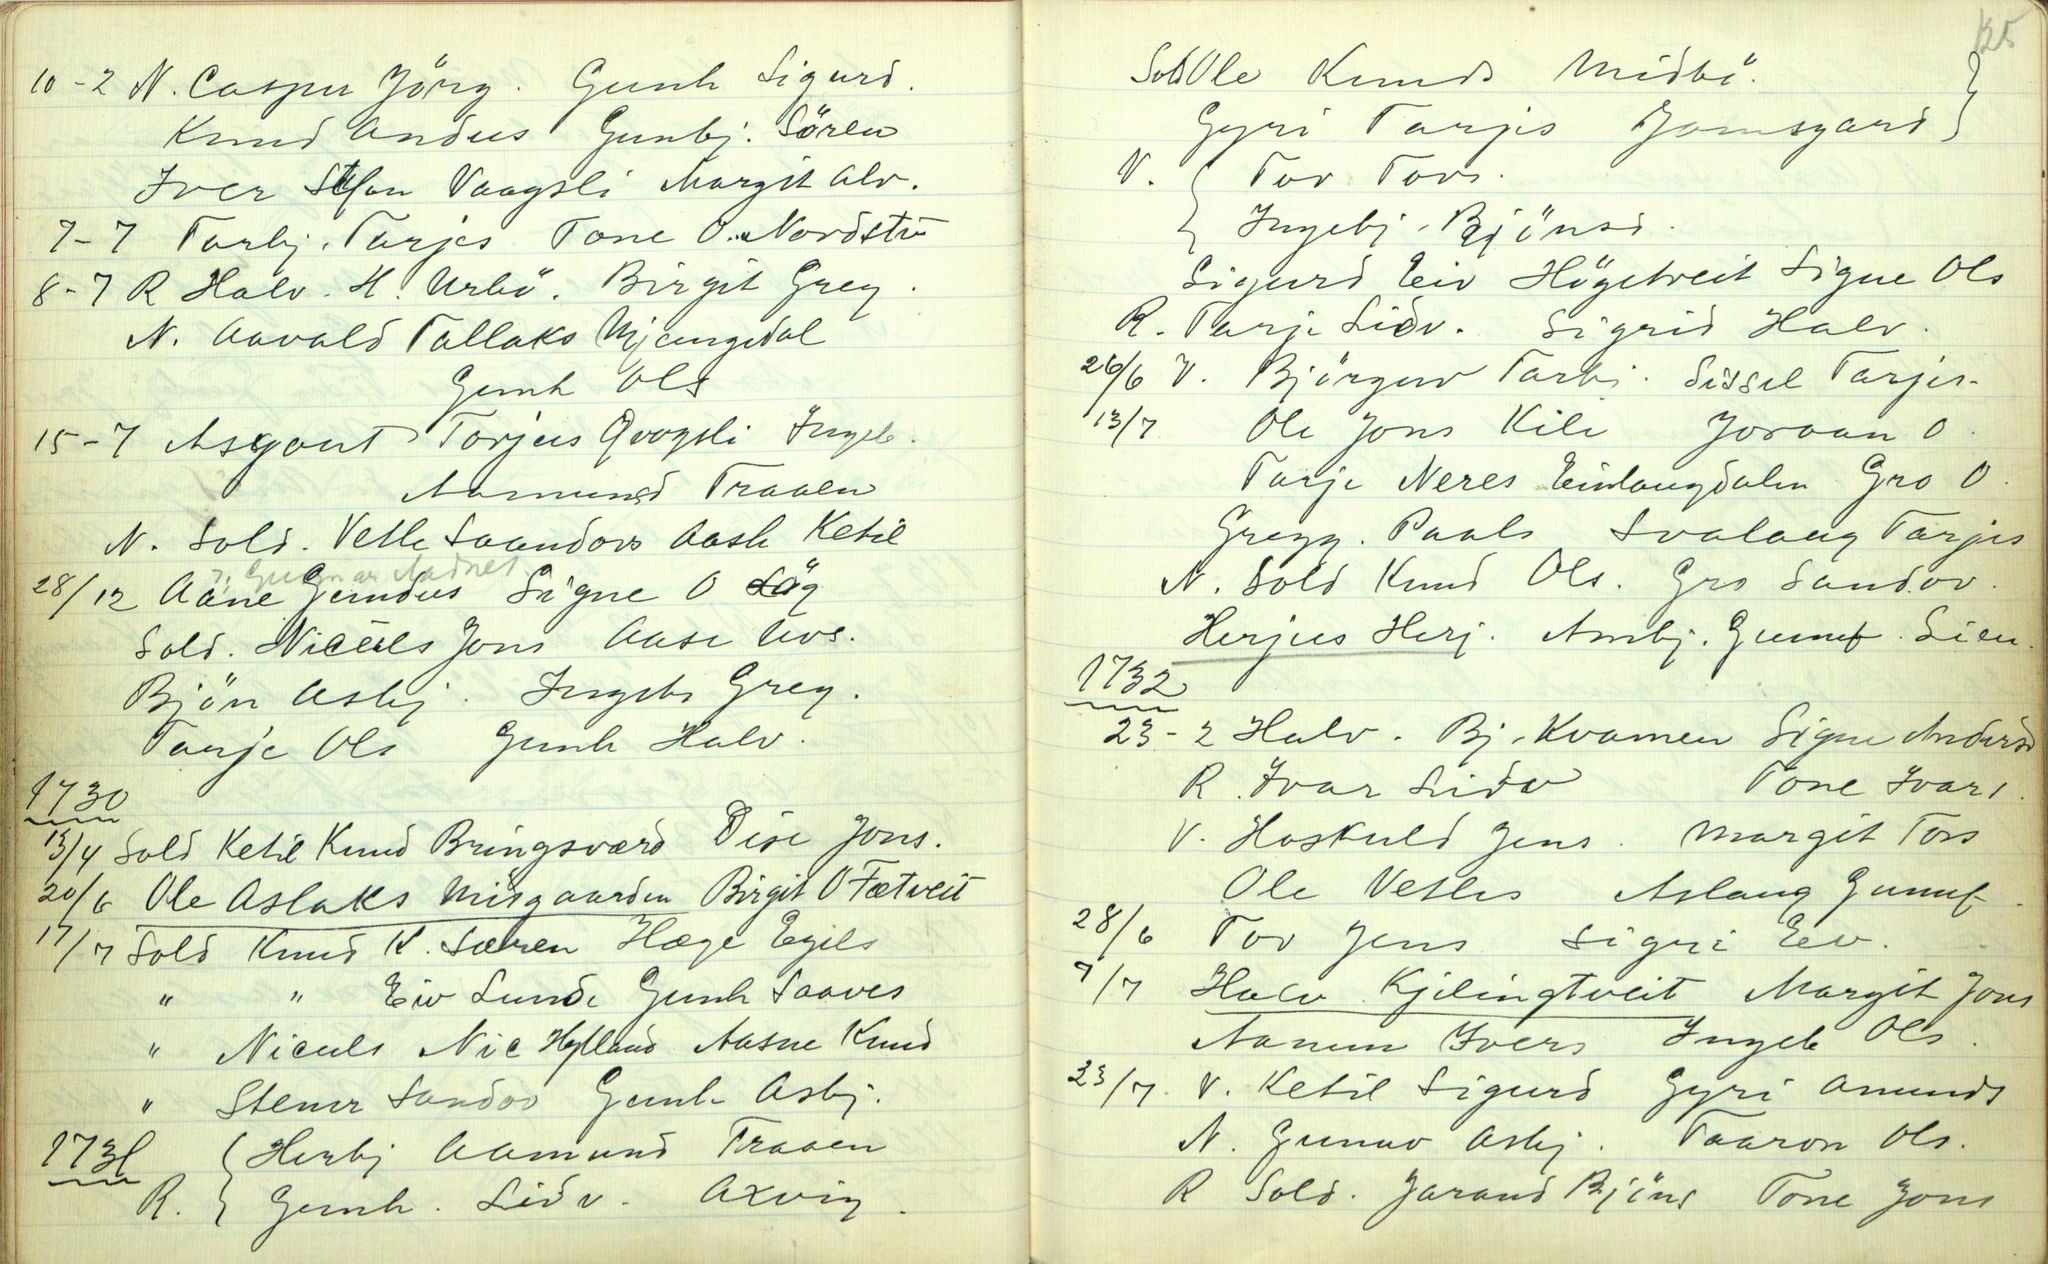 10-2 N. Casper Jörg. Gunh Sigurd.
Knud Andus Gunbj. Sören
Iver Stefan Vaagsli Margit Alv.
7-7 Tarbj. Tarjes Tone O. Nordstu
8-7 R Halv. H. Urbö. Birgit Greg.
N. Aavald Tallaks Mjaugedal
Gunh Ols
15-7 Asgout Torjus Qvogsli Ingeb.
Aamund Traaen
N. Sold. Vetle Saandovs Aash Ketil
Gunnar
28/12 Aane Gundus Signe O
Sold. Niculs Jons Aase
Bjön Asbj. Ingeb Greg.
Tarje Ols Gunh Halv.
1730
13/4 Sold Ketil Knud Bringsværd Dise Jons.
20/6 Ole Aslaks Misgaarden Birgit O Fætveit
17/7 Sold Knud K. Særen Hæge Egils
" " Eiv Lunde Gunh Saaves
" Niculs Nic Hylland Aasne Knud
" Stener Sandov Gunh Asbj.
1731 Herbj Aamund Traaen
R. Gunh. Lidv. Axvig.
125
Sold Ole Knuds Midbö.
Gyri Tarjes Jamsgard
V. Tov Tovs.
Ingebj. Bjönsd.
Sigurd Eiv Högetveit Signe Ols
R. Tarje Lidv. Sigrid Halv.
26/6 V. Björguv Tarbj. Sissel Tarjes.
13/7 Ole Jons Kili Joraan O.
Tarje Neres Einlaugdalen Gro O.
Gregg. Paals Svalaug Tarjes
N. Sold Knud Ols. Gro Sandov.
Herjus Herj. Ambj. Gunuf. Lien.
1732
23-2 Halv. Bj. Kvamen Signe Andersd
R. Ivar Lidv Tone Ivars.
V. Hoskuld Jens. Margit Tovs
Ole Vetles Aslaug Gunuf.
28/6 Tov Jens Sigri Eiv.
7/7 Halv Kjelingtveit Margit Jons
Aamun Ivers Ingeb Ols.
23/7. V. Ketil Sigurd Gyri Amunds
N. Gunuv Asbj. Taaron Ols.
R Sold. Jarand Bjöns Tone Jons